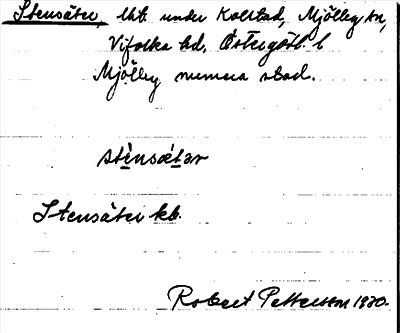 Stensäter, lht. under Kolstad, Mjölby sn,
Vifolka hd, Östergötl. l
Mjölby numera stad.
stènsætər
Stensäter kb.
Robert Petterson 1930.